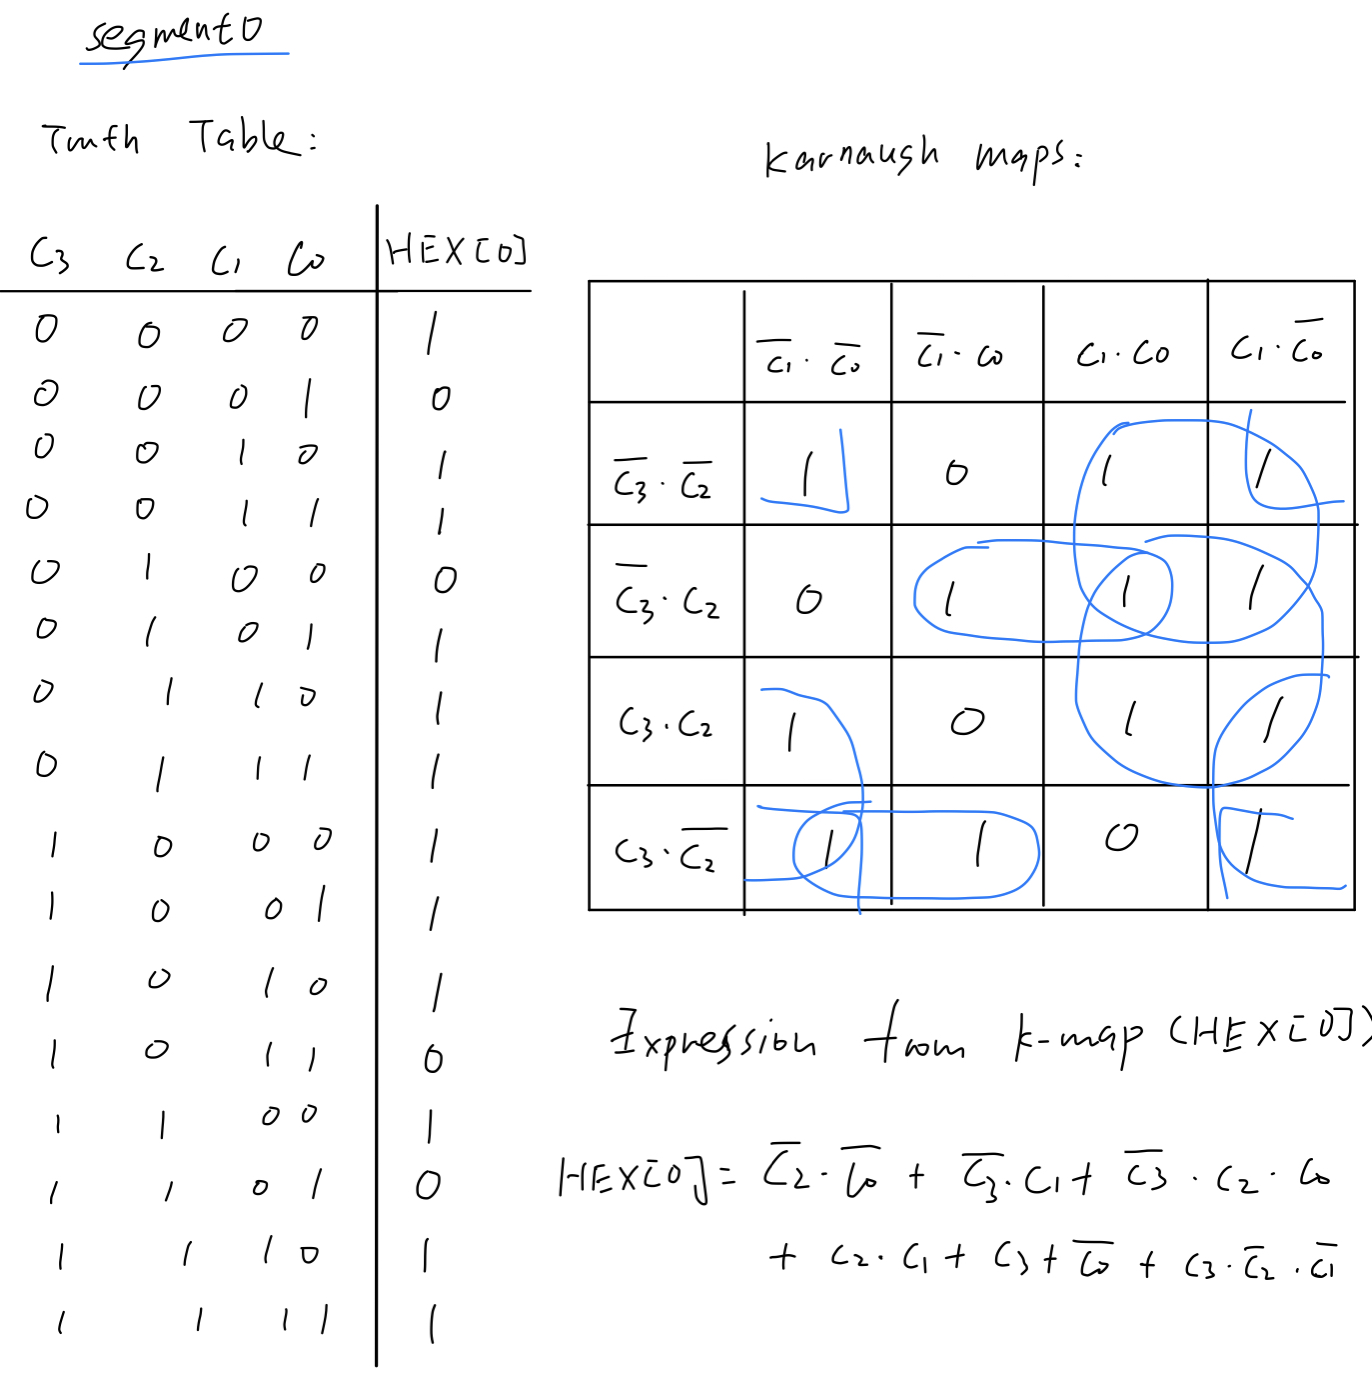 segment 0
Truth Table:
C3 C2 C1 C0 HEX[0]
0 0 0 0 1
0 0 0 1 0
0 0 1 0 1
0 0 1 1 1
0 1 0 0 0
0 1 0 1 1
0 1 1 0 1
0 1 1 1 1
1 0 0 0 1
1 0 0 1 1
1 0 1 0 1
1 0 1 1 0
1 1 0 0 1
1 1 0 1 0
1 1 1 0 1
1 1 1 1 1
Karnaugh maps:
C̅1·C̅0 C̅1·C0 C1·C0 C1·C̅0
C̅3·C̅2 1 0 1 1
C̅3·C2 0 1 1 1
C3·C2 1 0 1 1
C3·C̅2 1 1 0 1
Expression from k-map (HEX[0])
HEX[0] = C̅2·C̅0 + C̅3·C1 + C̅3·C2·C0
+ C2·C1 + C3 + C̅0 + C3·C̅2·C̅1